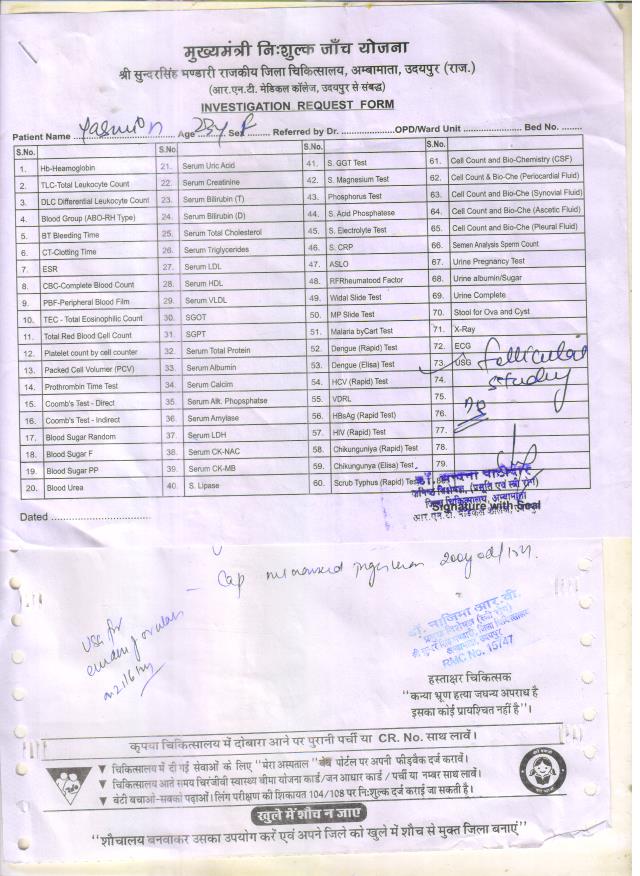 मुख्यमंत्री निःशुल्क जाँच योजना
श्री सुन्दरसिंह भण्डारी राजकीय जिला चिकित्सालय, अम्बामाता, उदयपुर (राज.)
(आर.एन.टी. मेडिकल कॉलेज, उदयपुर से संबद्ध)
INVESTIGATION REQUEST FORM
Patient Name ........ Age 23y Sex F Referred by Dr. ........ OPD/Ward Unit ........ Bed No. ........
S.No. S.No. S.No. S.No.
1. Hb-Heamoglobin 21. Serum Uric Acid 41. S. GGT Test 61. Cell Count and Bio-Chemistry (CSF)
2. TLC-Total Leukocyte Count 22. Serum Creatinine 42. S. Magnesium Test 62. Cell Count & Bio-Che (Periocardial Fluid)
3. DLC Differential Leukocyte Count 23. Serum Bilirubin (T) 43. Phosphorus Test 63. Cell Count and Bio-Che (Synovial Fluid)
4. Blood Group (ABO-RH Type) 24. Serum Bilirubin (D) 44. S. Acid Phosphatese 64. Cell Count and Bio-Che (Ascetic Fluid)
5. BT Bleeding Time 25. Serum Total Cholesterol 45. S. Electrolyte Test 65. Cell Count and Bio-Che (Pleural Fluid)
6. CT-Clotting Time 26. Serum Triglycerides 46. S. CRP 66. Semen Analysis Sperm Count
7. ESR 27. Serum LDL 47. ASLO 67. Urine Pregnancy Test
8. CBC-Complete Blood Count 28. Serum HDL 48. RFRheumatood Factor 68. Urine albumin/Sugar
9. PBF-Peripheral Blood Film 29. Serum VLDL 49. Widal Slide Test 69. Urine Complete
10. TEC - Total Eosinophilic Count 30. SGOT 50. MP Slide Test 70. Stool for Ova and Cyst
11. Total Red Blood Cell Count 31. SGPT 51. Malaria byCart Test 71. X-Ray
12. Platelet count by cell counter 32. Serum Total Protein 52. Dengue (Rapid) Test 72. ECG
13. Packed Cell Volumer (PCV) 33. Serum Albumin 53. Dengue (Elisa) Test 73. USG follicular
14. Prothrombin Time Test 34. Serum Calcim 54. HCV (Rapid) Test 74. study
15. Coomb's Test - Direct 35. Serum Allt. Phopsphatse 55. VDRL 75.
16. Coomb's Test - Indirect 36. Serum Amylase 56. HBsAg (Rapid Test) 76.
17. Blood Sugar Random 37. Serum LDH 57. HIV (Rapid) Test 77.
18. Blood Sugar F 38. Serum CK-NAC 58. Chikunguniya (Rapid) Test 78.
19. Blood Sugar PP 39. Serum CK-MB 59. Chikungunya (Elisa) Test 79.
20. Blood Urea 40. S. Lipase 60. Scrub Typhus (Rapid) Test
जिला चिकित्सालय, अम्बामाता
Dated ........ Signature with Seal
Cap
USG for
डॉ. नाजिमा आर.वी.
RMC No. 15747
हस्ताक्षर चिकित्सक
"कन्या भ्रूण हत्या जघन्य अपराध है
इसका कोई प्रायश्चित नहीं है"।
कृपया चिकित्सालय में दोबारा आने पर पुरानी पर्ची या CR. No. साथ लावें।
▼ चिकित्सालय में दी गई सेवाओं के लिए "मेरा अस्पताल" पोर्टल पर अपनी फीडबैक दर्ज करावें।
▼ चिकित्सालय आते समय चिरंजीवी स्वास्थ्य बीमा योजना कार्ड/जन आधार कार्ड / पर्ची या नम्बर साथ लावें।
▼ बेटी बचाओ-सबको पढ़ाओ। लिंग परीक्षण की शिकायत 104/108 पर निःशुल्क दर्ज कराई जा सकती है।
खुले में शौच न जाए
"शौचालय बनवाकर उसका उपयोग करें एवं अपने जिले को खुले में शौच से मुक्त जिला बनाएं"